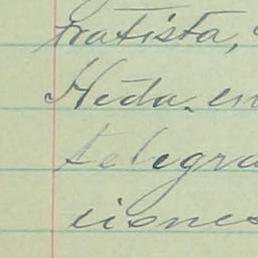 tratista,
Heda. en
telegra
ciones